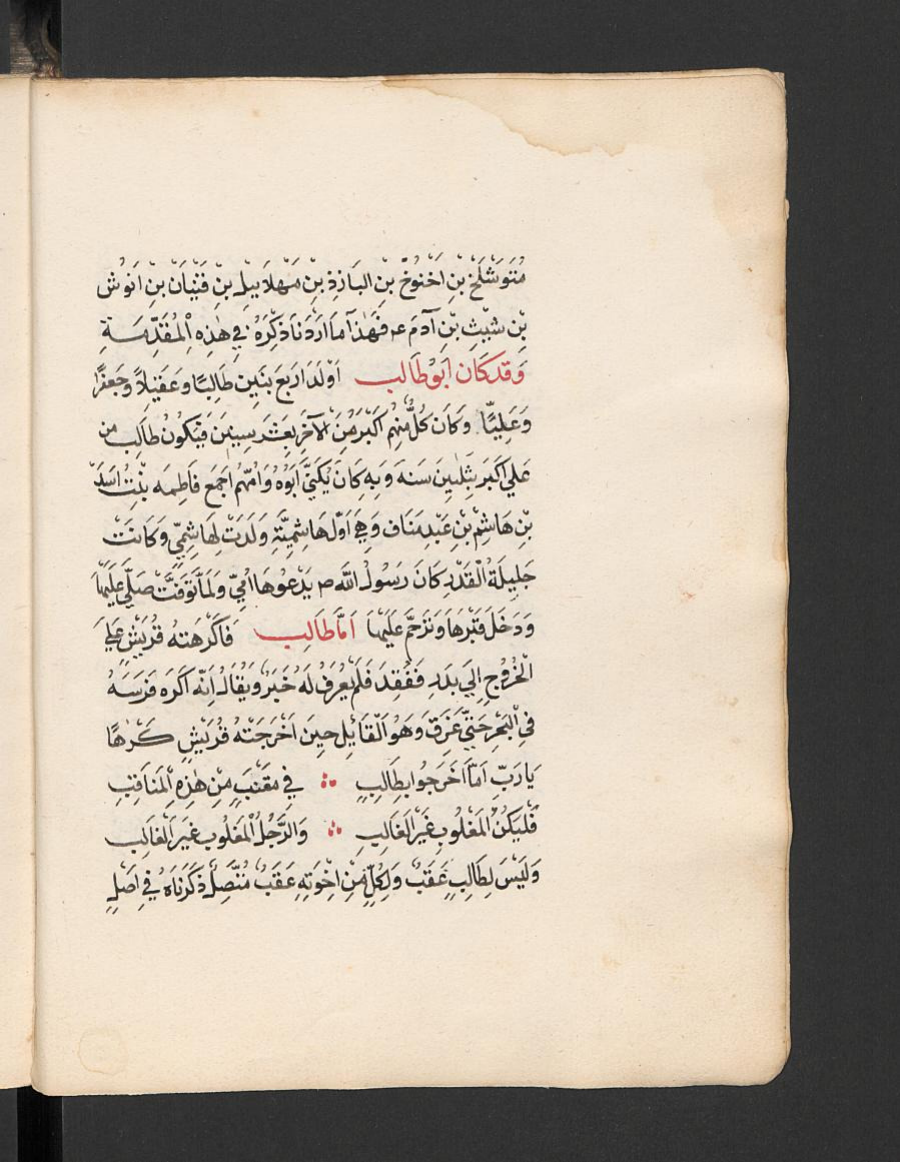 مُتَوَشْلَخَ بْنِ اَخْنُوخَ بْنِ البَارَذِ بْنِ مَهْلَابِيلَ بْنِ قَيْنَانَ بْنِ اَنُوشَ
بْن شَيْثِ بْن آدَمَ عم فَهٰذا مَا اَرَدْنَا ذِكْرَهُ فِي هٰذِهِ الْمُقَدِّمَةِ
وَقَد كَانَ اَبُو طَالِب اَوْلَدَ اَرْبَعَ بَنَيِن طَالِبًا وَعَقِيلاً وَجَعفَرًا
وَعَلِيًّا وَكَانَ كُلٌّ مِنْهُم اَكْبَرَ مِنَ الآخَرِ بِعَشَرِ سِنِينَ فَيَكُونُ طَالِب من
عَلي اَكبَر بِثَلٰثِينَ سَنَه وَبِهِ كَانَ يُكَنَّي اَبُوهُ وَاُمّهُم اَجمَع فَاطِمَه بِنْتُ اَسَدِ
بْنِ هَاشِمْ بْنِ عَبْدِ مَنَاف وَهِيَ اَوَّل هَاشِمِيَّةٍ وَلَدَتْ لِهَاشِمِيٍّ وَكَانَتْ
جَلِيلَةُ الْقَدَرِ كَانَ رَسُولُ الله ص يَدْعُوهَا اُمِّي وَلَمَّا تَوَفَّتْ صَلّي عَلَيْهَا
وَدَخَلَ قَبْرَهَا وَتَرَحَّمَ عَلَيْهَا اَمَّا طَالِب فَاَكْرَهَتهُ قُرَيْشٍ عَلَي
الْخُرُوجِ اِلَي بَدَرِ فَفُقِدَ فَلَمْ يُعْرَفْ لَهُ خَبَرٌ وَيُقَالُ اِنّه اَكَرَه فَرَسَهُ
فِي الْبَحْرِ حَتّي غَرِقَ وَهُوَ الْقَائِل حِينَ اَخْرَجَتْهُ قُرَيْشٍ كَرْهًا
يَا رَبّ اَمَّا اَخْرَجوا بِطَالِبٍ فِي مِقْنَبٍ مِنْ هٰذِهِ الْمَنَاقِبِ
فَلْيَكُنْ الْمَغْلُوبِ غَيْرَ الْغَالِبِ وَالرَّجُلُ الْمَغْلُوب غَيْرَ الْغَالِب
وَلَيْسَ لِطَالِبٍ عَقَبٌ وَلِكُلٍّ مِنْ اِخْوَتِهِ عَقَبٌ مُتَّصِلٌ ذَكَرْنَاهُ فِي اَصْلٍ